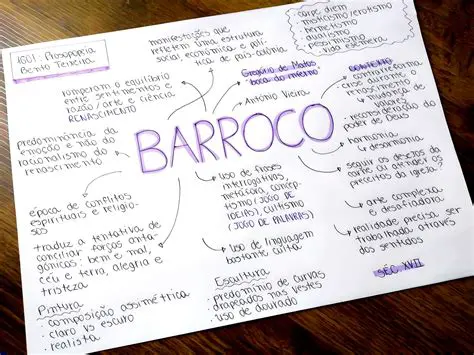 1601: Prosopopeia
Bento Teixeira
manifestações que
refletem uma estrutura
social, econômica e polí-
tica de país-colônia
carpe diem
misticismo/erotismo
pessimismo
vida efêmera
romperam o equilíbrio
entre sentimentos e
razão / arte e ciência
RENASCIMENTO
Gregório de Matos
"boca do inferno"
Antônio Vieira
CONTEXTO
contra reforma
crise durante
o renascimento
mudança de
valores
reconsideração do
poder de Deus
predominância da
emoção e não do
racionalismo do
renascimento
BARROCO
harmonia
da desarmonia
seguir os desejos da
carne ou atender os
preceitos da igreja?
época de conflitos
espirituais e religio-
sos
uso de frases
interrogativas,
metáfora, concep-
tismo (JOGO DE
IDEIAS), cultismo
(JOGO DE PALAVRAS)
arte complexa
e desafiadora
traduz a tentativa de
conciliar forças anta-
gônicas: bem e mal,
céu e terra, alegria e
tristeza
uso de linguagem
bastante culta
realidade precisa ser
trabalhada através
dos sentidos
SÉC. XVII
Pintura
• composição assimétrica
• claro vs escuro
• realista
Escultura
• predomínio de curvas
• drapeados nas vestes
• uso de dourado